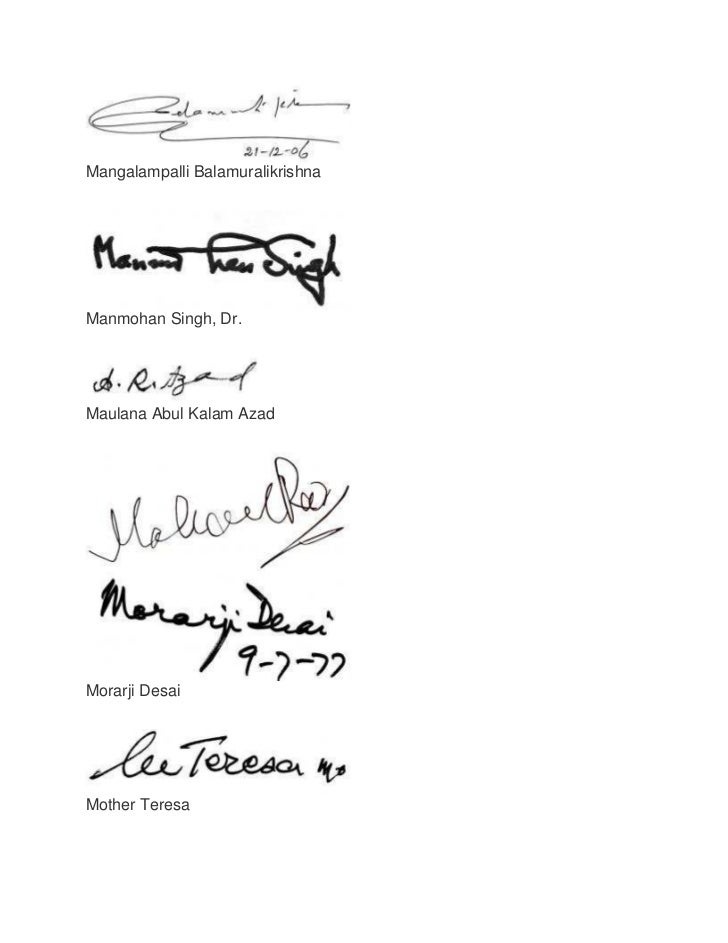 21-12-06
Mangalampalli Balamuralikrishna
Manmohan Singh
Manmohan Singh, Dr.
A. R. Azad
Maulana Abul Kalam Azad
Morarji Desai
9-7-77
Morarji Desai
Teresa
Mother Teresa